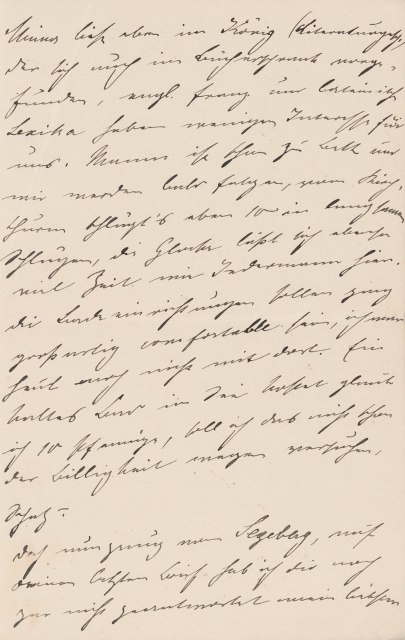 Minna liest eben im König (Literaturgesch.,
der sich auch im Bücherschrank vorge-
funden, engl. franz. und lateinische
Lexika haben weniger Interesse für
uns. Mama ist schon zu Bett und
wir werden bald folgen, vom Kirch-
thurm schlägt's eben 10 in langsamen
Schlägen, die Glocke läßt sich ebenso
viel Zeit wie Jedermann hier.
die Badeeinrichtungen sollen ganz
großartig comfortable sein, ich war
heut noch nicht mit dort. Ein
kaltes Bad im See kostet glaub
ich 10 Pfennige, soll ich das nicht schon
der Billigkeit wegen versuchen,
Schatz? –
Doch nun genug von Segeberg, auf
deinen letzten Brief hab ich dir noch
gar nicht geantwortet mein liebster